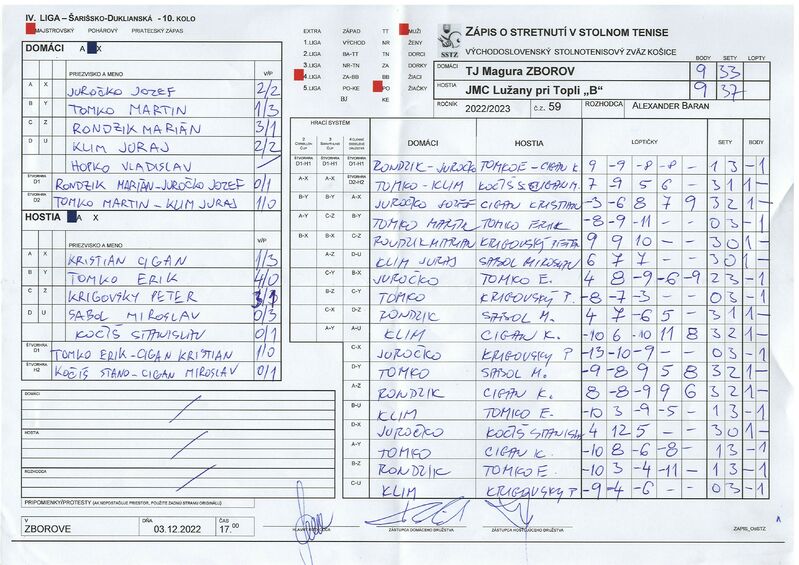 IV. LIGA – ŠARIŠSKO-DUKLIANSKÁ - 10. KOLO
MAJSTROVSKÝ POHÁROVÝ PRIATEĽSKÝ ZÁPAS
DOMÁCI A X
PRIEZVISKO A MENO V/P
A X JUROČKO JOZEF 2/2
B Y TOMKO MARTIN 1/3
C Z RONDZIK MARIÁN 3/1
D U KLIM JURAJ 2/2
HOPKO VLADISLAV
ŠTVORHRA D1 RONDZIK MARIÁN-JUROČKO JOZEF 0/1
ŠTVORHRA D2 TOMKO MARTIN - KLIM JURAJ 1/0
HOSTIA A X
PRIEZVISKO A MENO V/P
A X KRISTIAN CIGAN 1/3
B Y TOMKO ERIK 4/0
C Z KRIGOVSKY PETER 3/1
D U SABOL MIROSLAV 0/3
KOČIŠ STANISLAV 0/1
ŠTVORHRA D1 TOMKO ERIK-CIGAN KRISTIAN 1/0
ŠTVORHRA H2 KOČIŠ STANO-CIGAN MIROSLAV 0/1
DOMÁCI
HOSTIA
ROZHODCA
PRIPOMIENKY/PROTESTY (AK NEPOSTAČUJE PRIESTOR, POUŽITE ZADNÚ STRANU ORIGINÁLU)
V ZBOROVE
DŇA 03.12.2022
ČAS 17.00
EXTRA ZÁPAD TT MUŽI
1.LIGA VÝCHOD NR ŽENY
2.LIGA BA-TT ZA DORCI
3.LIGA NR-TN ZA DORKY
4.LIGA ZA-BB BB ŽIACI
5.LIGA PO-KE PO ŽIAČKY
BJ KE
SSTZ
ZÁPIS O STRETNUTÍ V STOLNOM TENISE
VÝCHODOSLOVENSKÝ STOLNOTENISOVÝ ZVÄZ KOŠICE
BODY SETY LOPTY
DOMÁCI TJ Magura ZBOROV 9 33
HOSTIA JMC Lužany pri Topli „B" 9 37
ROČNÍK 2022/2023 č.z. 59 ROZHODCA ALEXANDER BARAN
HRACÍ SYSTÉM
DOMÁCI HOSTIA LOPTIČKY SETY BODY
RONDZIK-JUROČKO TOMKO E-CIGAN K. 9 -9 -8 -8 - 1 3 -1
TOMKO-KLIM KOČIŠ S-CIGAN M. 7 -9 5 6 - 3 1 1 -
JUROČKO JOZEF CIGAN KRISTIAN -3 -6 8 7 9 3 2 1 -
TOMKO MARTIN TOMKO ERIK -8 -9 -11 - - 0 3 -1
RONDZIK MARIAN KRIGOVSKÝ PETER 9 9 10 - - 3 0 1 -
KLIM JURAJ SABOL MIROSLAV 6 7 7 - - 3 0 1 -
JUROČKO TOMKO E. 4 8 -9 -6 -9 2 3 -1
TOMKO KRIGOVSKÝ P. -8 -7 -3 - - 0 3 -1
RONDZIK SABOL M. 4 7 -6 5 - 3 1 1 -
KLIM CIGAN K. -10 6 -10 11 8 3 2 1 -
JUROČKO KRIGOVSKY P -13 -10 -9 - - 0 3 -1
TOMKO SABOL M. -9 -8 9 5 8 3 2 1 -
RONDZIK CIGAN K. 8 -8 -9 9 6 3 2 1 -
KLIM TOMKO E. -10 3 -9 -5 - 1 3 -1
JUROČKO KOČIŠ STANISLAV 4 12 5 - - 3 0 1 -
TOMKO CIGAN K. -10 8 -6 -8 - 1 3 -1
RONDZIK TOMKO E. -10 3 -4 -11 - 1 3 -1
KLIM KRIGOVSKÝ P -9 -4 -6 - - 0 3 -1
HLAVNÝ ROZHODCA
ZÁSTUPCA DOMÁCEHO DRUŽSTVA
ZÁSTUPCA HOSŤUJÚCEHO DRUŽSTVA
ZAPIS_OsSTZ